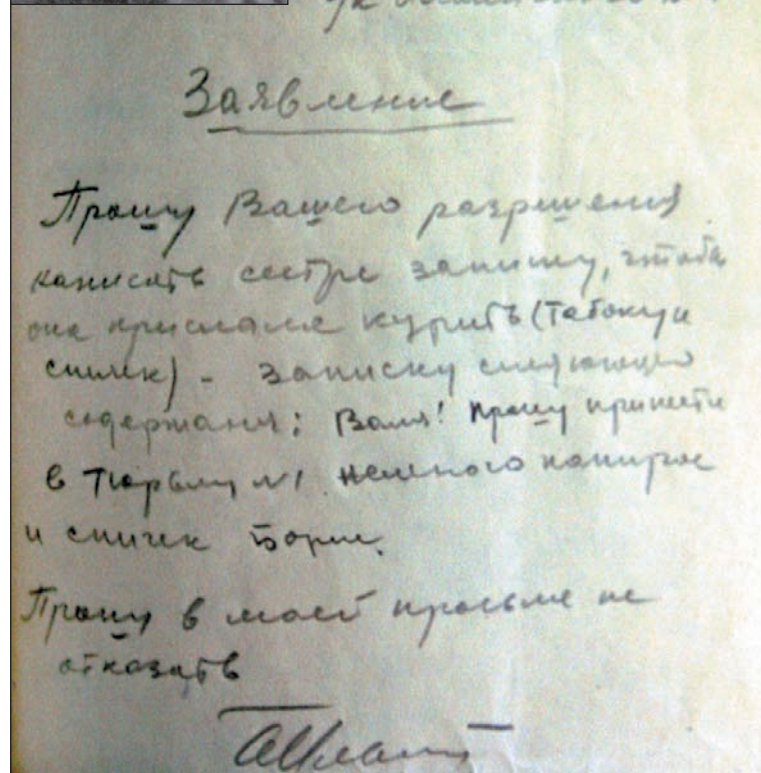 Заявление
Прошу Вашего разрешения
написать сестре записку, чтобы
она прислала курить (табоку и
спичек) - записку следующего
содержания: Валя! Прошу принести
в тюрьму №1 немного папирос
и спичек Борис.
Прошу в моей просьбе не
отказать